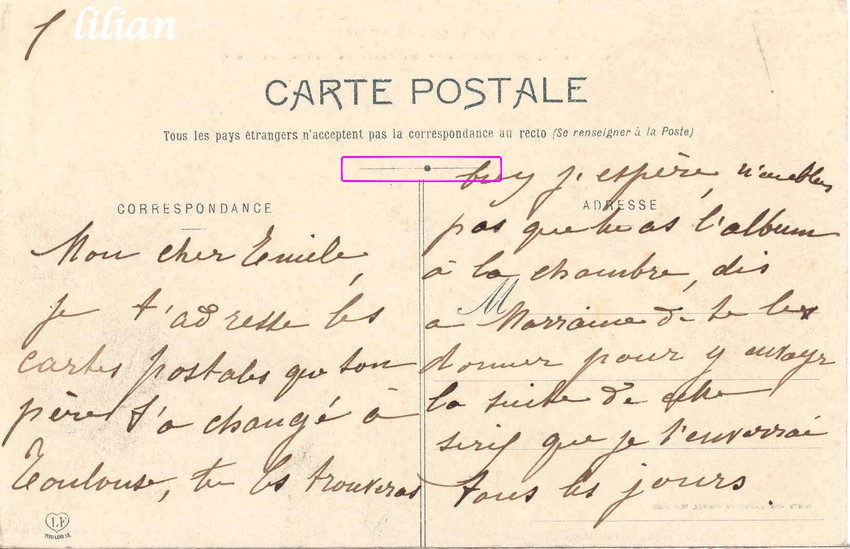 lilian
CARTE POSTALE
Tous les pays étrangers n'acceptent pas la correspondance au recto (Se renseigner à la Poste)
CORRESPONDANCE
Mon cher Emile,
je t'adresse les
cartes postales que ton
père t'a changé à
Toulouse, tu les trouveras
ADRESSE
j'espère, n'oublies
pas que tu as l'album
à la chambre, dis
M
a Marraine de te les
donner pour y envoyr
la suite de cette
serie que je t'enverrai
tous les jours.
LF
TOULOUSE